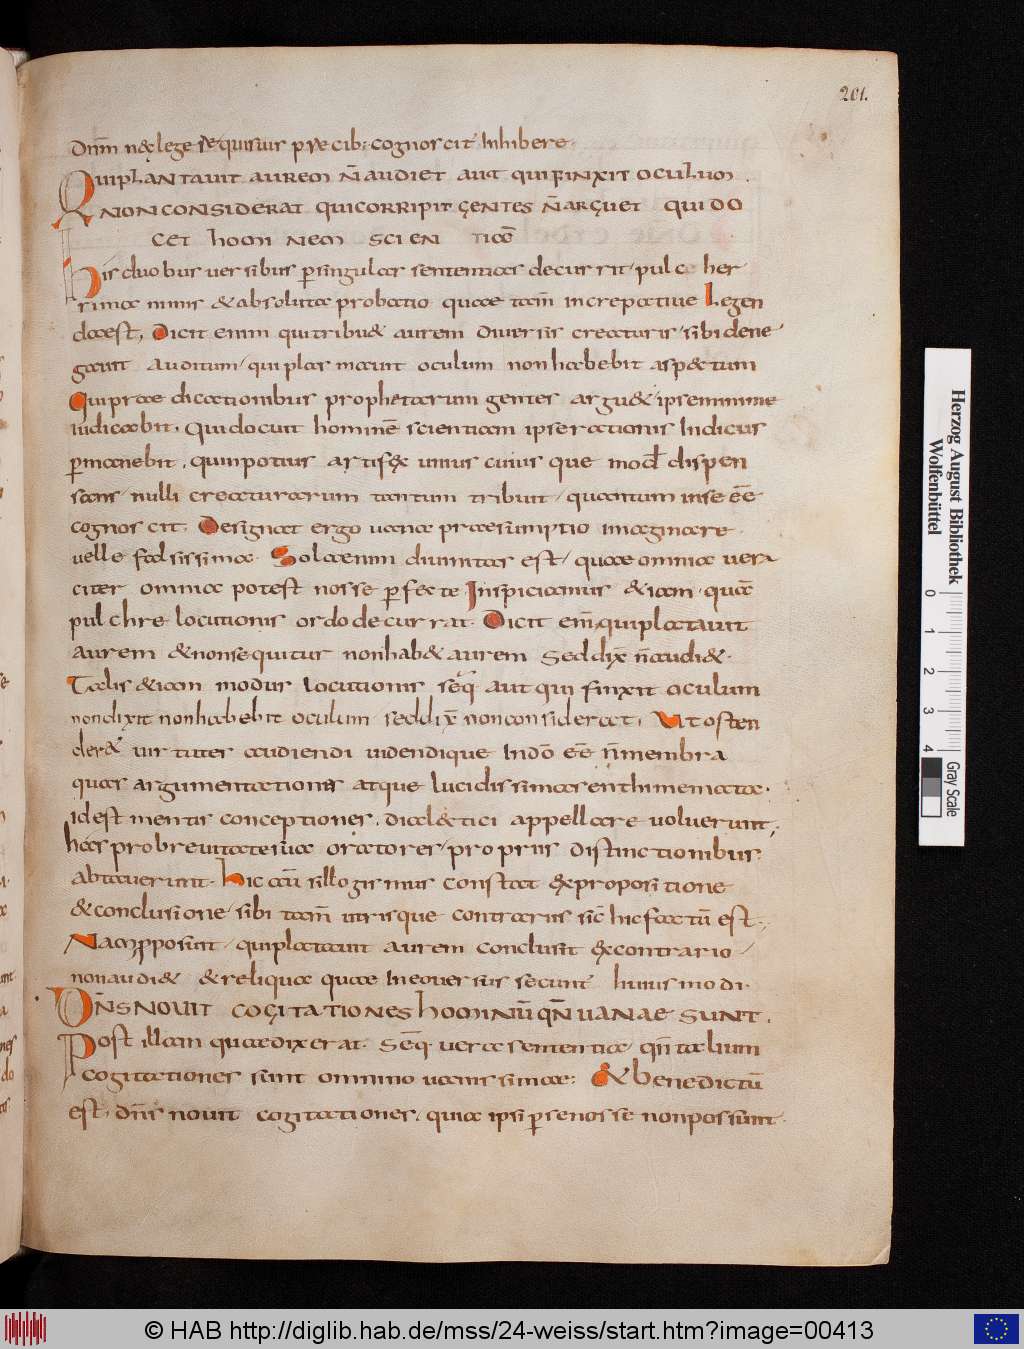 201.
dnm̄ neclege se quisuis
cognoscit Inhibere
Quiplantauit aurem n̄ audiet aut quifinxit oculum.
nonconsiderat quicorripit gentes n̄ arguet quido
cet hominem scientiā
His duobus uersibus p̱ singulas sententias decurrit pulcher
rimae nimis & absolutae probatio quae tam̄ increpatiue legen
daest, Dicit enim qui tribu& aurem diuersis creaturis sibi dene
gauit auditum qui plasmauit oculum non habebit aspectum
Qui prae dicationibus prophetarum gentes argu& ipse minime
iudicabit. Quidocuit hominē scientiam ipse rationis Indicus
p̱manebit. quinpotius artifex unius cuius que mod̄ dispen
sans nulli creaturarum tantum tribuit quantum inse eē
cognoscit. Designat ergo uana praesumptio imaginare
uelle falsissima. Sola enim diuinitas est quae omnia uera
citer omnia potest nosse p̱fecte. Inspiciamus & iam quā
pulchre locutionis ordo decurrat. Dicit eni̅ quiplatauit
aurem & nonsequitur nonhab& aurem sed dix̄ n̄ audi&.
Talis & iam modus locutionis seq̄ aut qui finxit oculum
nondixit nonhabebit oculum sed dix̄ nonconsiderat. Ut osten
der& uirtutes audiendi uidendique Indō eē n̄ membra
quas argumentationis atque lucidissimas enthimemata.
idest mentis conceptiones. dialectici appellare uoluerunt,
has pro breuitate suae oratores propriis distinctionibus
abtauerunt. Hic aū sillogismus constat expropositione
& conclusione sibi tam̄ utrisque contrariis sic̄ hic factū est.,
Nam p̱posuit quiplatauit aurem conclusit excontrario
nonaudi& & reliquae quae Ineouersus secunt̄ huiusmodi.
Dn̄s nouit cogitationes hominū qn̄ uanae sunt.
Post illam quae dixerat. Seq̄ uera sententia qn̄ talium
cogitationes sunt omnino uanissimae: & benedictū
est. dn̄s nouit cogitationes. quia ipsi p̱se nosse nonpossunt.
Herzog August Bibliothek
Wolfenbüttel
0 1 2 3 4
Gray Scale
© HAB http://diglib.hab.de/mss/24-weiss/start.htm?image=00413